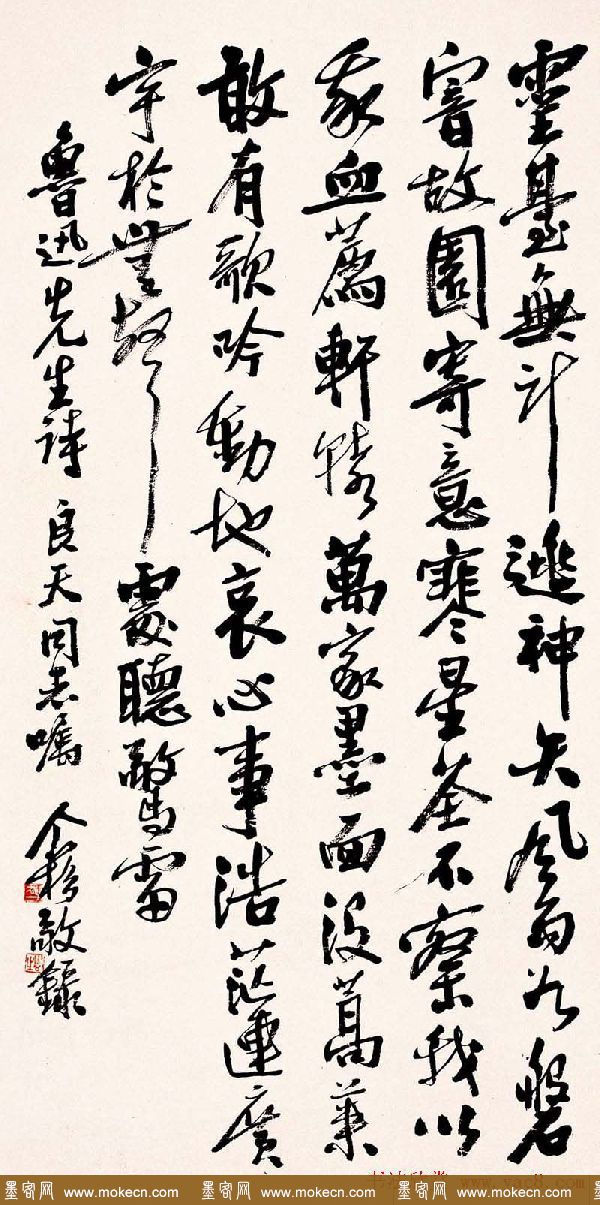 靈臺無計逃神矢風雨如磐
闇故園寄意寒星荃不察我以
我血薦軒轅萬家墨面没蒿萊
敢有歌吟動地哀心事浩茫連廣
宇於無聲處聽驚雷
魯迅先生詩 良天同志嘱 个簃敬錄
www.yac8.com
墨客网 www.mokecn.com 墨客网 www.mokecn.com 墨客网 www.mokecn.com